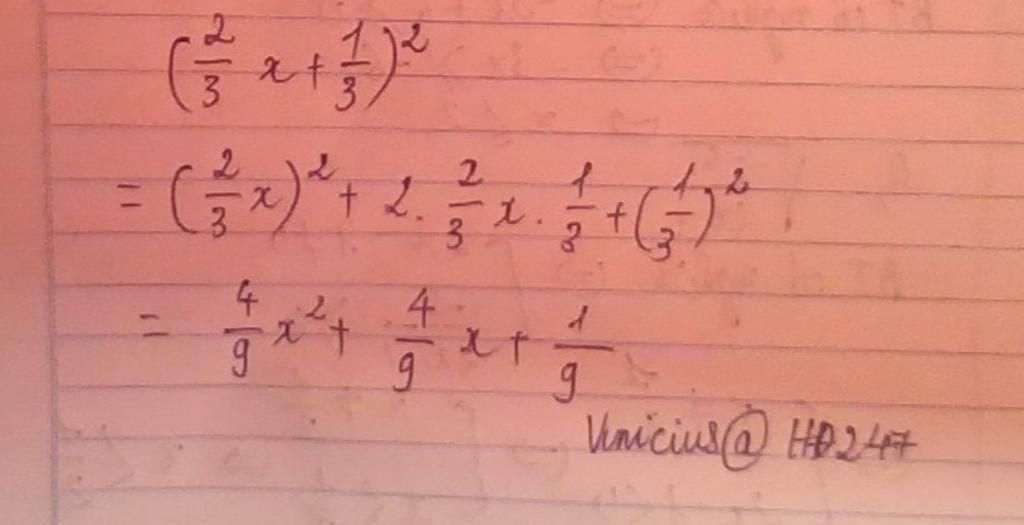 (2/3 x + 1/3)²
= (2/3 x)² + 2. 2/3 x. 1/3 + (1/3)²
= 4/9 x² + 4/9 x + 1/9
Vinicius@ HD247